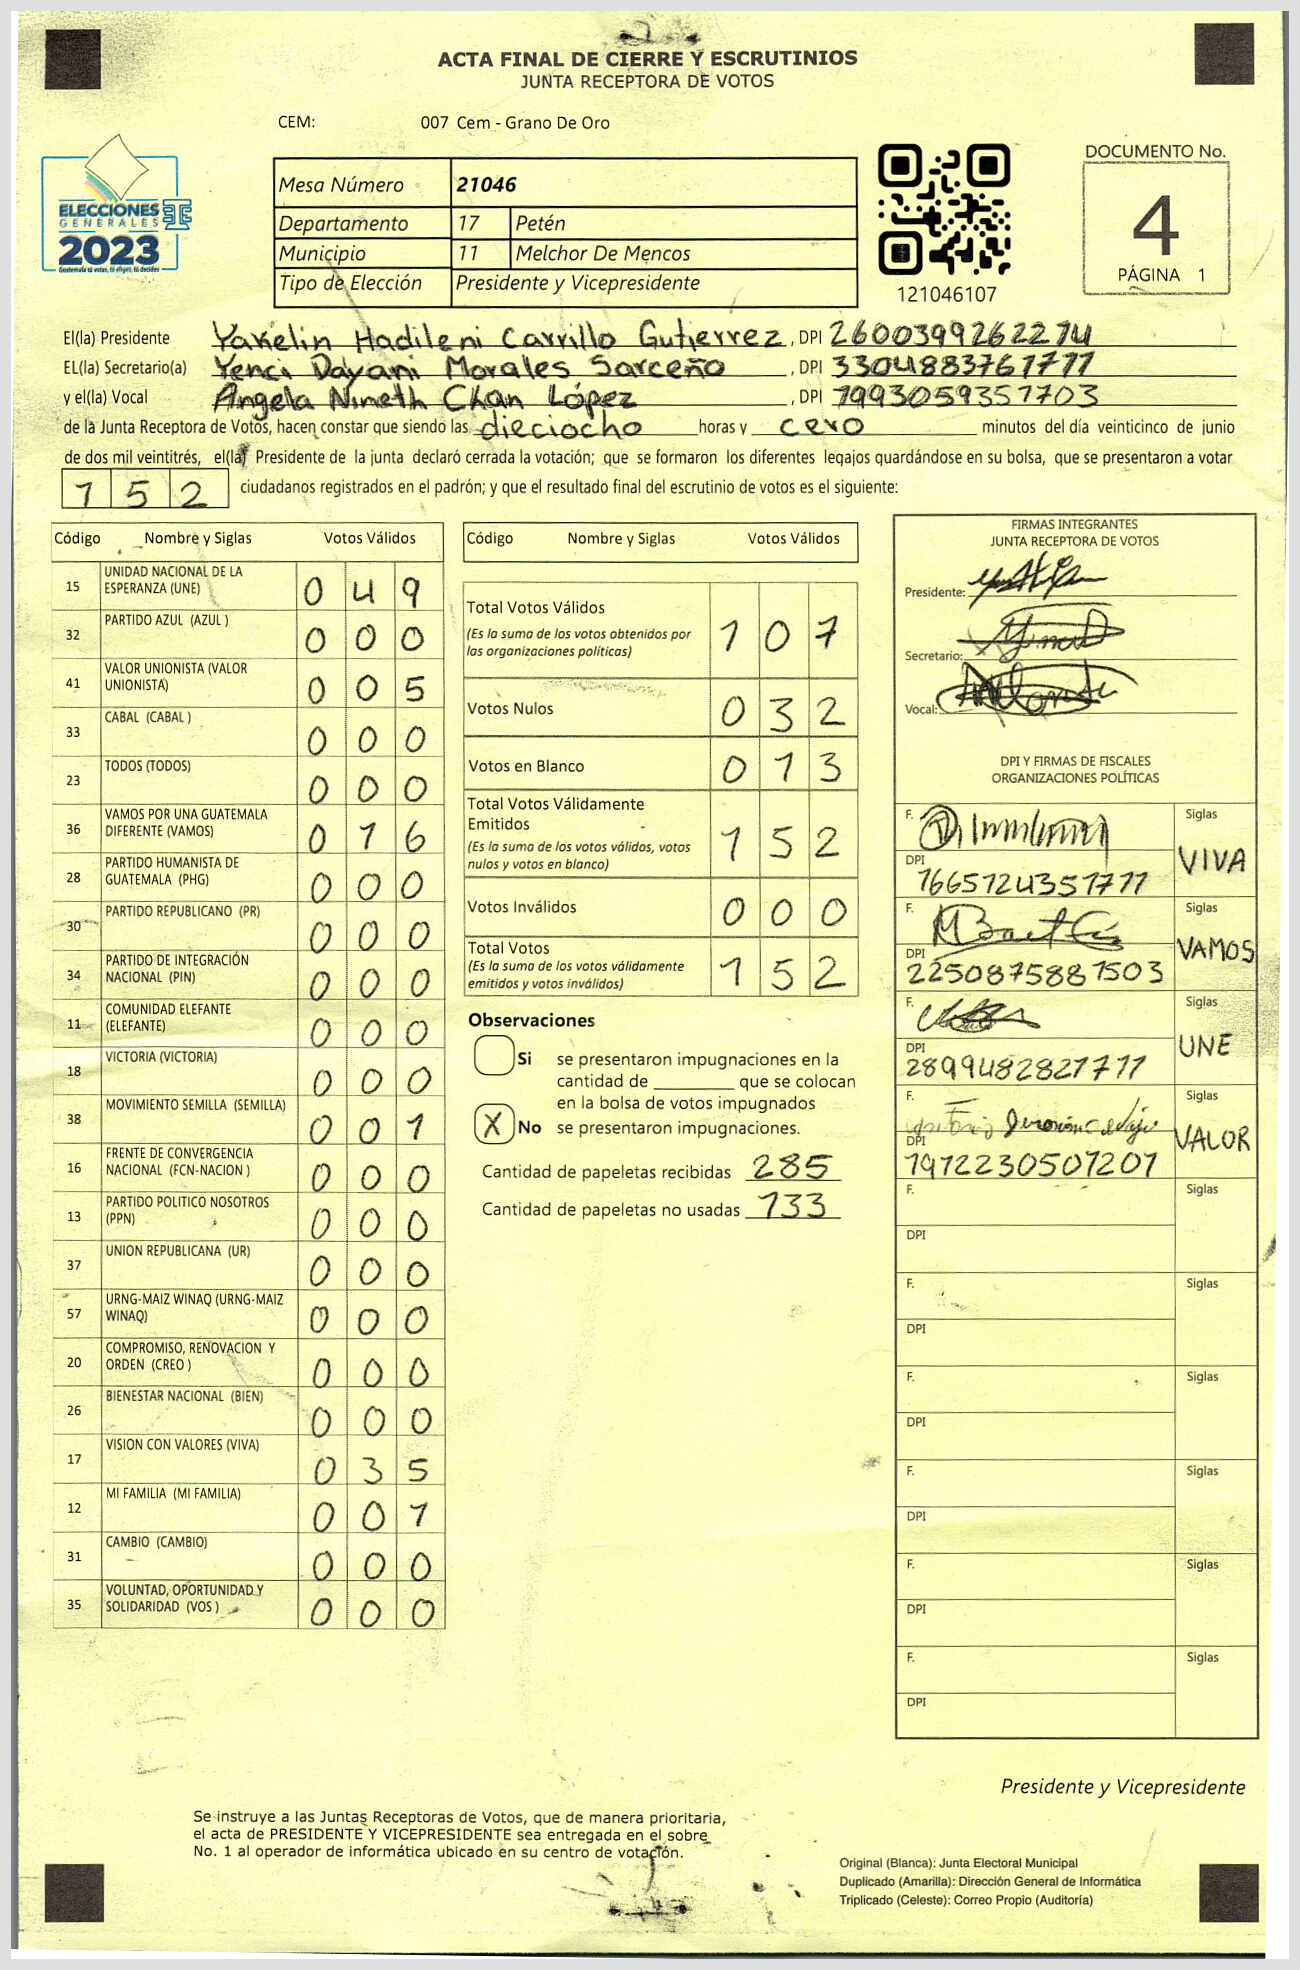 ACTA FINAL DE CIERRE Y ESCRUTINIOS
JUNTA RECEPTORA DE VOTOS
CEM: 007 Cem - Grano De Oro
ELECCIONES
GENERALES
2023
Guatemala tú votas, tú eliges, tú decides
Mesa Número 21046
Departamento 17 Petén
Municipio 11 Melchor De Mencos
Tipo de Elección Presidente y Vicepresidente
121046107
DOCUMENTO No.
4
PÁGINA 1
El(la) Presidente Yakelin Hadileni Carrillo Gutierrez, DPI 2600399262274
EL(la) Secretario(a) Yenci Dayani Morales Sarceño, DPI 3304883761711
y el(la) Vocal Angela Nineth Chan López, DPI 1993059351703
de la Junta Receptora de Votos, hacen constar que siendo las dieciocho horas y cero minutos del día veinticinco de junio
de dos mil veintitrés, el(la) Presidente de la junta declaró cerrada la votación; que se formaron los diferentes legajos quardándose en su bolsa, que se presentaron a votar
152 ciudadanos registrados en el padrón; y que el resultado final del escrutinio de votos es el siguiente:
Código Nombre y Siglas Votos Válidos
15 UNIDAD NACIONAL DE LA ESPERANZA (UNE) 0 4 9
32 PARTIDO AZUL (AZUL ) 0 0 0
41 VALOR UNIONISTA (VALOR UNIONISTA) 0 0 5
33 CABAL (CABAL ) 0 0 0
23 TODOS (TODOS) 0 0 0
36 VAMOS POR UNA GUATEMALA DIFERENTE (VAMOS) 0 1 6
28 PARTIDO HUMANISTA DE GUATEMALA (PHG) 0 0 0
30 PARTIDO REPUBLICANO (PR) 0 0 0
34 PARTIDO DE INTEGRACIÓN NACIONAL (PIN) 0 0 0
11 COMUNIDAD ELEFANTE (ELEFANTE) 0 0 0
18 VICTORIA (VICTORIA) 0 0 0
38 MOVIMIENTO SEMILLA (SEMILLA) 0 0 1
16 FRENTE DE CONVERGENCIA NACIONAL (FCN-NACION ) 0 0 0
13 PARTIDO POLITICO NOSOTROS (PPN) 0 0 0
37 UNION REPUBLICANA (UR) 0 0 0
57 URNG-MAIZ WINAQ (URNG-MAIZ WINAQ) 0 0 0
20 COMPROMISO, RENOVACION Y ORDEN (CREO ) 0 0 0
26 BIENESTAR NACIONAL (BIEN) 0 0 0
17 VISION CON VALORES (VIVA) 0 3 5
12 MI FAMILIA (MI FAMILIA) 0 0 1
31 CAMBIO (CAMBIO) 0 0 0
35 VOLUNTAD, OPORTUNIDAD Y SOLIDARIDAD (VOS ) 0 0 0
Código Nombre y Siglas Votos Válidos
Total Votos Válidos 1 0 7
(Es la suma de los votos obtenidos por
las organizaciones políticas)
Votos Nulos 0 3 2
Votos en Blanco 0 1 3
Total Votos Válidamente
Emitidos 1 5 2
(Es la suma de los votos válidos, votos
nulos y votos en blanco)
Votos Inválidos 0 0 0
Total Votos 1 5 2
(Es la suma de los votos válidamente
emitidos y votos inválidos)
Observaciones
Si se presentaron impugnaciones en la
cantidad de ________ que se colocan
en la bolsa de votos impugnados
X No se presentaron impugnaciones.
Cantidad de papeletas recibidas 285
Cantidad de papeletas no usadas 133
FIRMAS INTEGRANTES
JUNTA RECEPTORA DE VOTOS
Presidente:
Secretario:
Vocal:
DPI Y FIRMAS DE FISCALES
ORGANIZACIONES POLÍTICAS
F. Siglas
VIVA
DPI
1665124351711
F. Siglas
VAMOS
DPI
2250875881503
F. Siglas
UNE
DPI
2899482821711
F. Siglas
VALOR
DPI
1912230501201
F. Siglas
DPI
F. Siglas
DPI
F. Siglas
DPI
F. Siglas
DPI
F. Siglas
DPI
F. Siglas
DPI
Presidente y Vicepresidente
Se instruye a las Juntas Receptoras de Votos, que de manera prioritaria,
el acta de PRESIDENTE Y VICEPRESIDENTE sea entregada en el sobre
No. 1 al operador de informática ubicado en su centro de votación.
Original (Blanca): Junta Electoral Municipal
Duplicado (Amarilla): Dirección General de Informática
Triplicado (Celeste): Correo Propio (Auditoría)